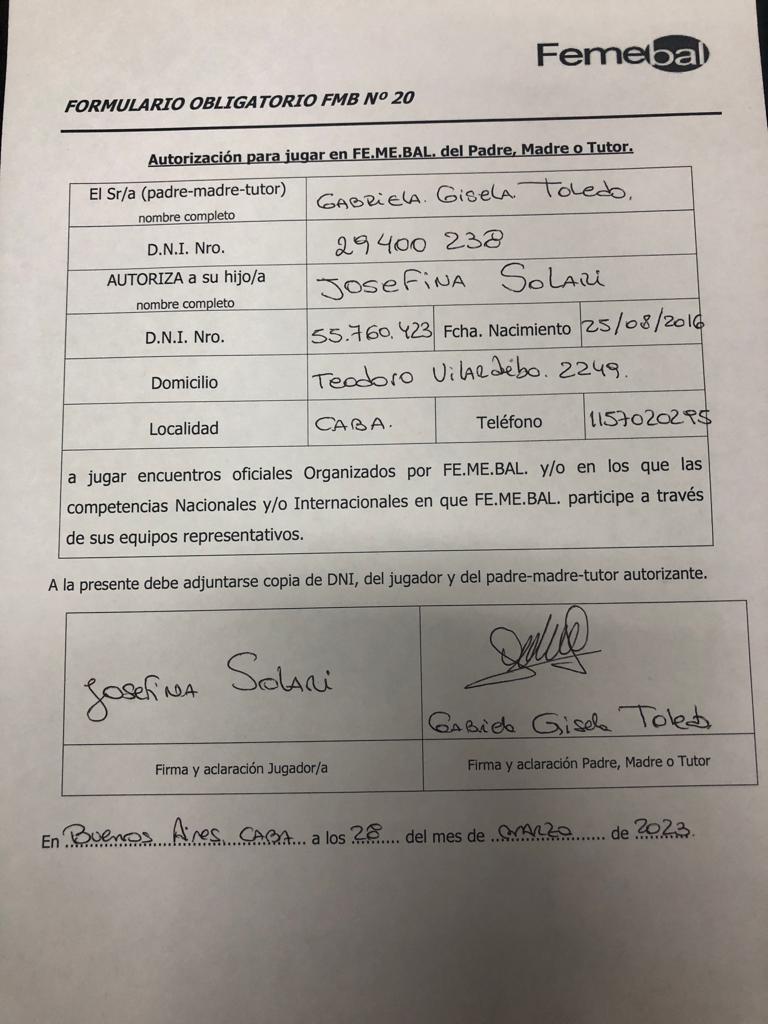 Femebal
FORMULARIO OBLIGATORIO FMB Nº 20
Autorización para jugar en FE.ME.BAL. del Padre, Madre o Tutor.
El Sr/a (padre-madre-tutor) GABRIELA. GISELA TOLEDO.
nombre completo
D.N.I. Nro. 29400 238
AUTORIZA a su hijo/a JOSEFINA SOLARI
nombre completo
D.N.I. Nro. 55.760.423 Fcha. Nacimiento 25/08/2016
Domicilio TEODORO VILARDEBO. 2249.
Localidad CABA. Teléfono 1157020295
a jugar encuentros oficiales Organizados por FE.ME.BAL. y/o en los que las
competencias Nacionales y/o Internacionales en que FE.ME.BAL. participe a través
de sus equipos representativos.
A la presente debe adjuntarse copia de DNI, del jugador y del padre-madre-tutor autorizante.
JOSEFINA SOLARI
GABRIELA GISELA TOLEDO
Firma y aclaración Jugador/a Firma y aclaración Padre, Madre o Tutor
En Buenos Aires, CABA a los 28 del mes de MARZO de 2023.